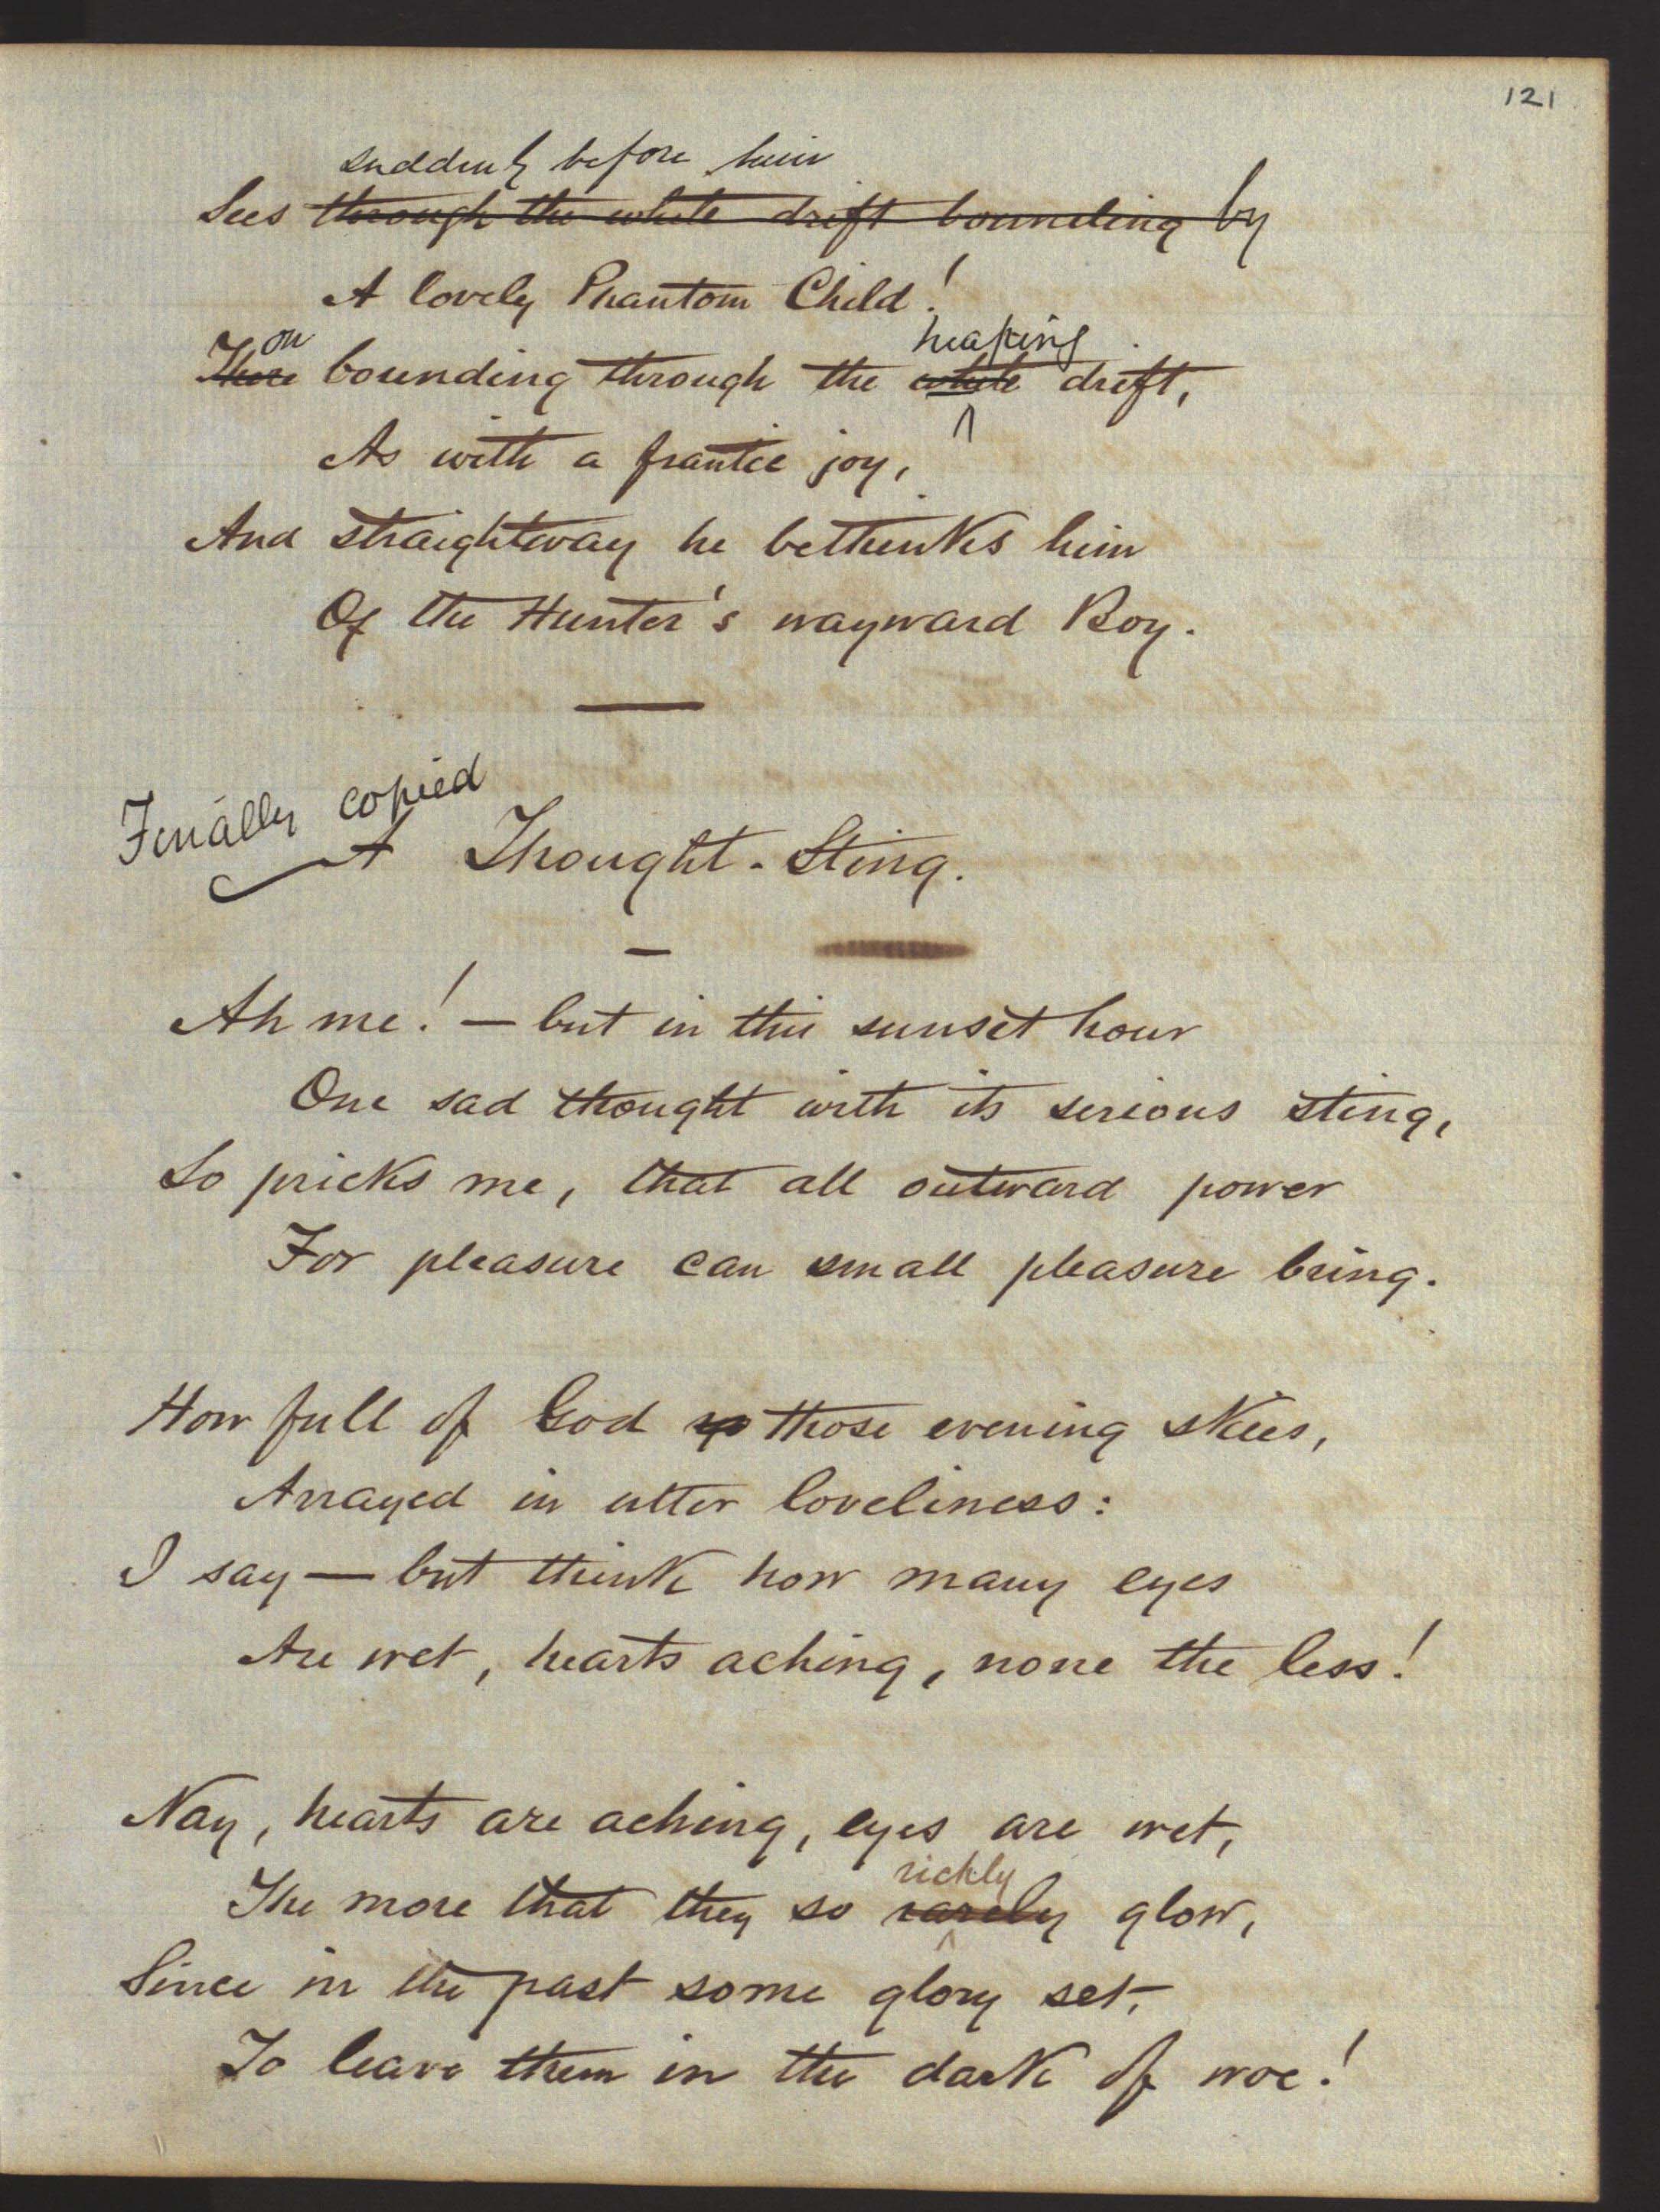 121
suddenly before him
Sees through the white drift bounding by
A lovely Phantom Child!
on heaping
There bounding through the white drift,
^
As with a frantic joy,
And straightway he bethinks him
Of the Hunter's wayward Boy.
Finally copied
A Thought-Sting.
Ah me! — but in this sunset hour
One sad thought with its serious sting,
So pricks me, that all outward power
For pleasure can small pleasure bring.
How full of God those evening skies,
Arrayed in utter loveliness:
I say — but think how many eyes
Are wet, hearts aching, none the less!
Nay, hearts are aching, eyes are wet,
richly
The more that they so rarely glow,
^
Since in the past some glory set,
To leave them in the dark of woe!